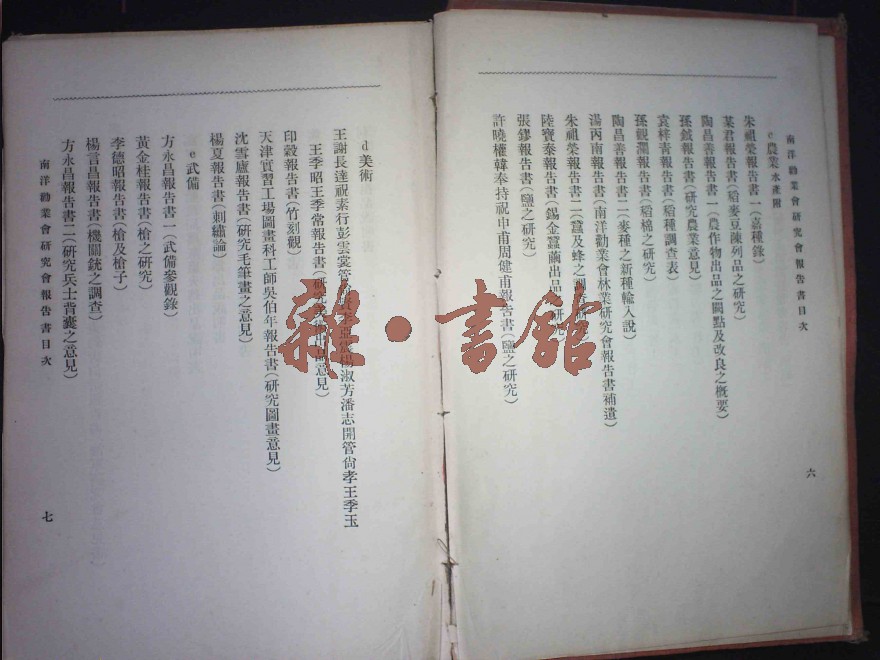 南洋勸業會研究會報告書目次
六
e農業水產附
朱祖榮報告書一(嘉種錄)
某君報告書(稻麥豆陳列品之研究)
陶昌善報告書一(農作物出品之闕點及改良之概要)
孫鉞報告書(研究農業意見)
袁梓青報告書(稻種調查表)
孫觀瀾報告書(稻棉之研究)
陶昌善報告書二(麥種之新種輸入說)
湯丙南報告書(南洋勸業會林業研究會報告書補遺)
朱祖榮報告書二(蠶及蜂之調查
陸寶泰報告書(錫金蠶繭出品 研究
張鏐報告書(鹽之研究)
許曉權韓奉持祝申甫周健甫報告書(鹽之研究)
d美術
王謝長達祝素行彭雲裳管 亞 楊淑芳潘志開管尙孝王季玉
王季昭王季常報告書(研究美術出品意見)
印穀報告書(竹刻觀)
天津實習工場圖畫科工師吳伯年報告書(研究圖畫意見)
沈雪廬報告書(研究毛筆畫之意見)
楊夏報告書(刺繡論)
e武備
方永昌報告書一(武備參觀錄)
黃金桂報告書(槍之研究)
李德昭報告書(槍及槍子)
楊言昌報告書(機關銃之調查)
方永昌報告書二(研究兵士背囊之意見)
南洋勸業會研究會報告書目次
七
雜·書館